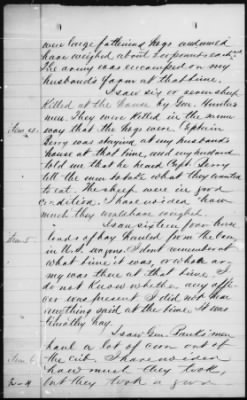 were large fattening hogs and would
have weighed about 200 pounds each
The army was encamped on my
husband's farm at that time.
I saw six or seven sheep
killed at the house by Gen. Hunter's
men. They were killed in the same
way that the hogs were.
was staying at my husband's
house at that time, and my husband
told me that he heard Capt.
tell the men to take what they wanted
to eat. The sheep were in good
condition. I have no idea how
much they would have weighed.
I saw sixteen four horse
loads of hay hauled from the barn
in U.S. wagons I dont remember at
what time it was, or whose army
was there at that time. I
do not know whether any officer
was present I did not hear
anything said at the time It was
timothy hay.
Item 6.
I saw Gen. Banks' men
haul a lot of corn out of
the crib. I have no idea
how much they took,
but they took a good